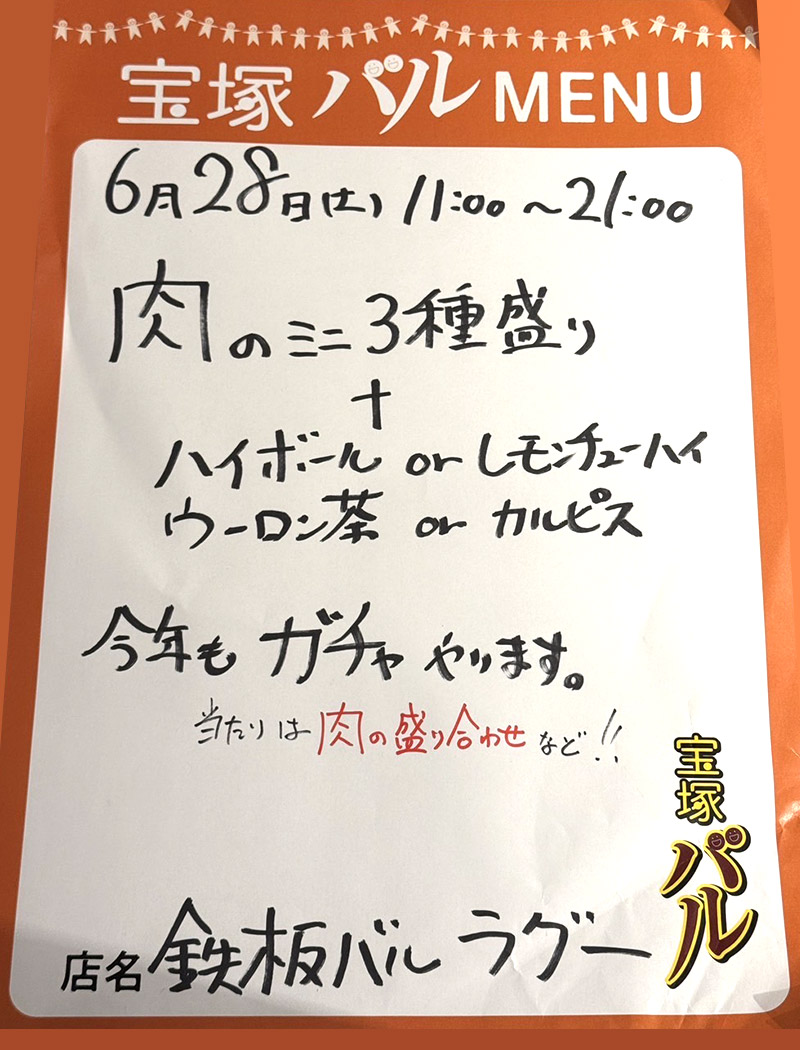 宝塚バル MENU
6月28日(土) 11:00～21:00
肉のミニ3種盛り
+
ハイボール or レモンチューハイ
ウーロン茶 or カルピス
今年もガチャやります。
当たりは肉の盛り合わせなど!!
宝塚バル
店名 鉄板バル ラグー